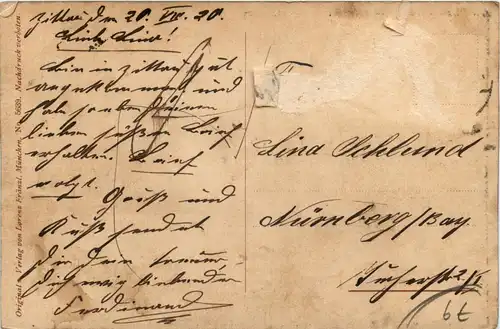 Zittau den 20. VII. 20.
Liebe Lina!
Bin in Zittau gut
angekommen und
habe soeben Deinen
lieben süßen Brief
erhalten. Brief
folgt.
Gruß und
Kuß sendet
Dir Dein
Dich ewig liebender
Ferdinand
II
Lina Schlund
Nürnberg/Bay.
Original u. Verlag von Lorenz Fränzl, München, Nr. 5689. Nachdruck verboten.